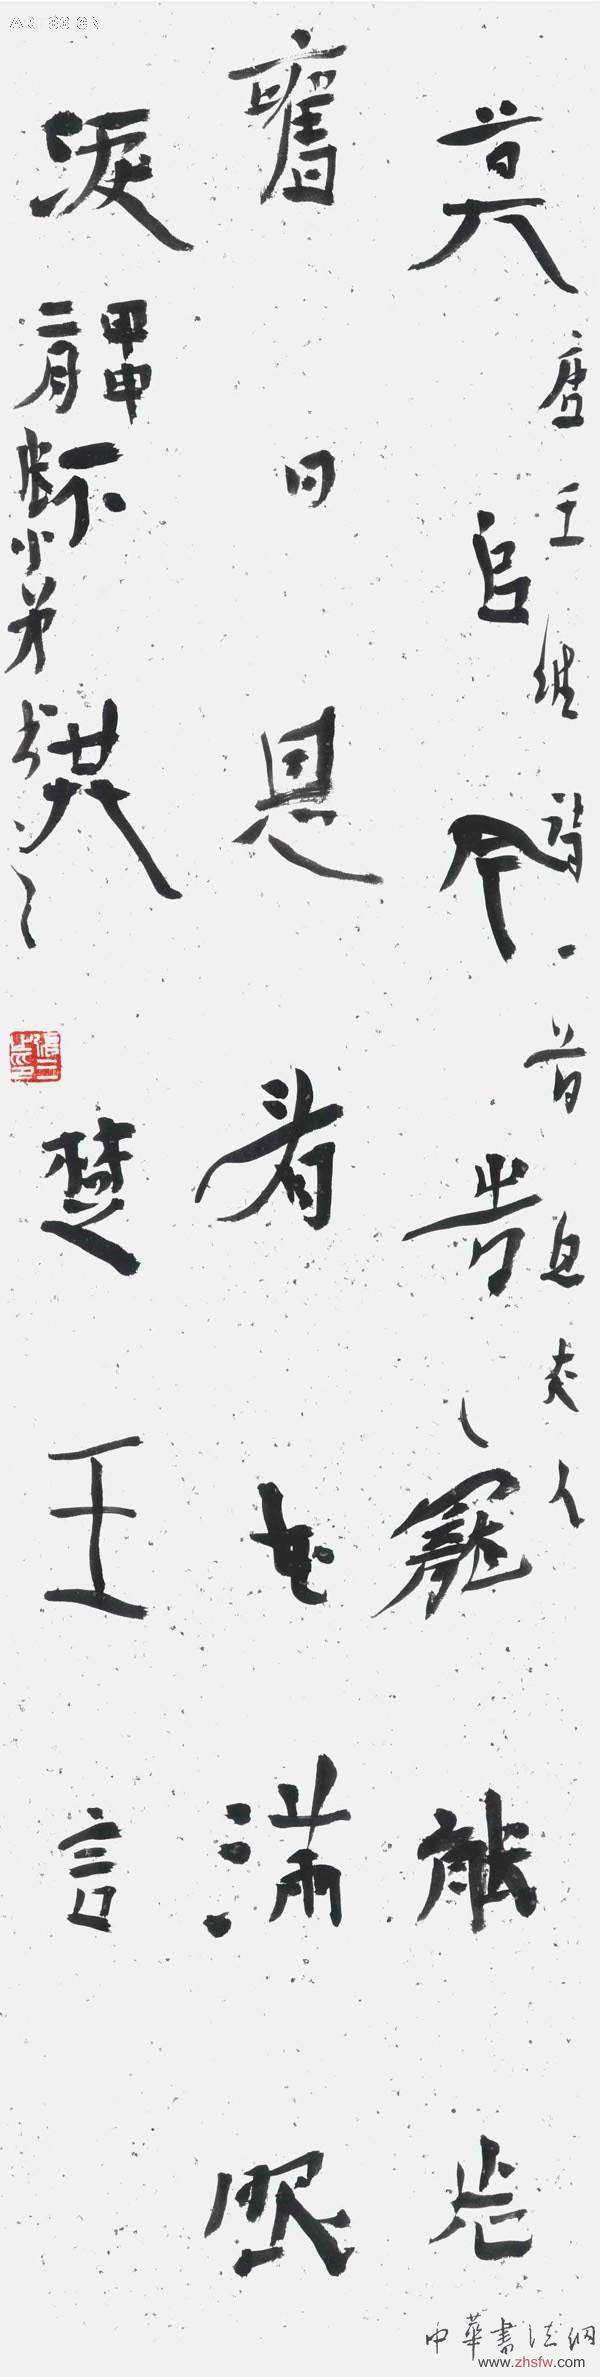 唐王維詩一首息夫人
莫㠯今旹寵能忘
舊日恩看花滿眼
淚不共楚王言
甲申
二月
中華書法網
www.zhsfw.com